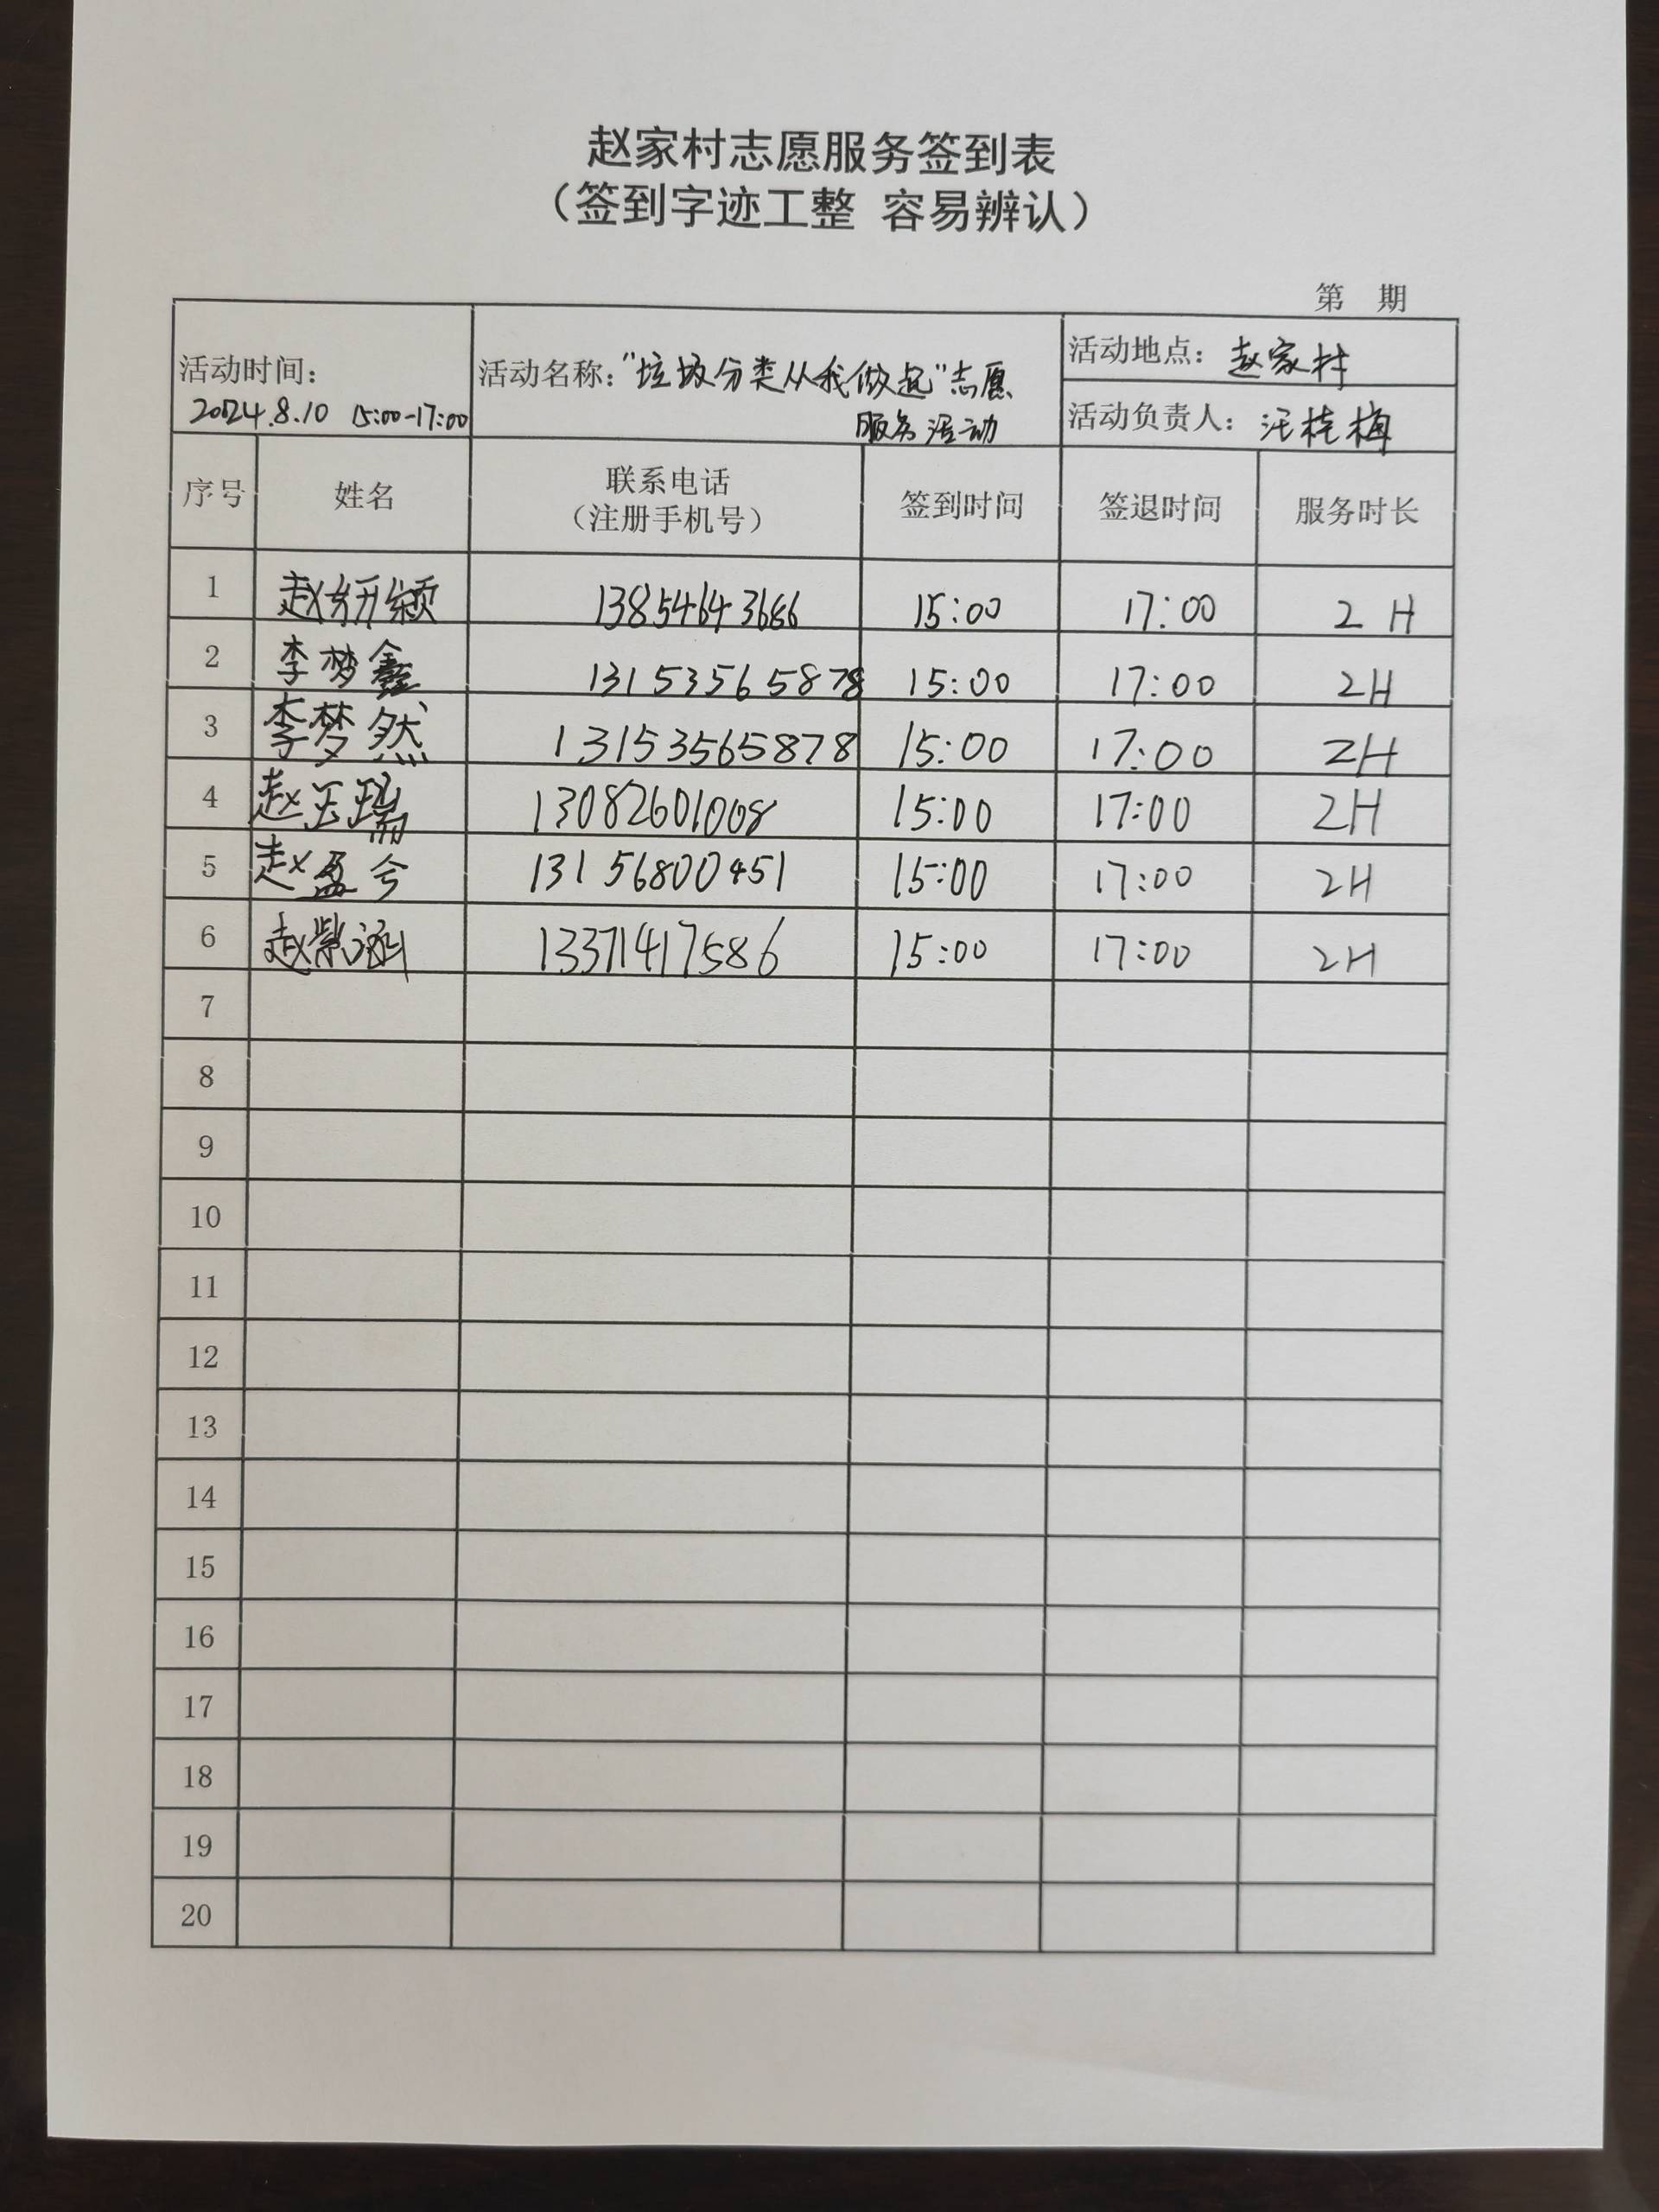 赵家村志愿服务签到表
（签到字迹工整 容易辨认）
第 期
活动时间：
2024.8.10 15:00-17:00
活动名称："垃圾分类从我做起"志愿
服务活动
活动地点：赵家村
活动负责人：汪桂梅
序号 姓名 联系电话（注册手机号） 签到时间 签退时间 服务时长
1 赵妍颖 13854643686 15:00 17:00 2 H
2 李梦鑫 13153565878 15:00 17:00 2H
3 李梦然 13153565878 15:00 17:00 2H
4 赵玉瑞 13082601008 15:00 17:00 2H
5 赵盈兮 13156800451 15:00 17:00 2H
6 赵紫涵 13371417586 15:00 17:00 2H
7
8
9
10
11
12
13
14
15
16
17
18
19
20